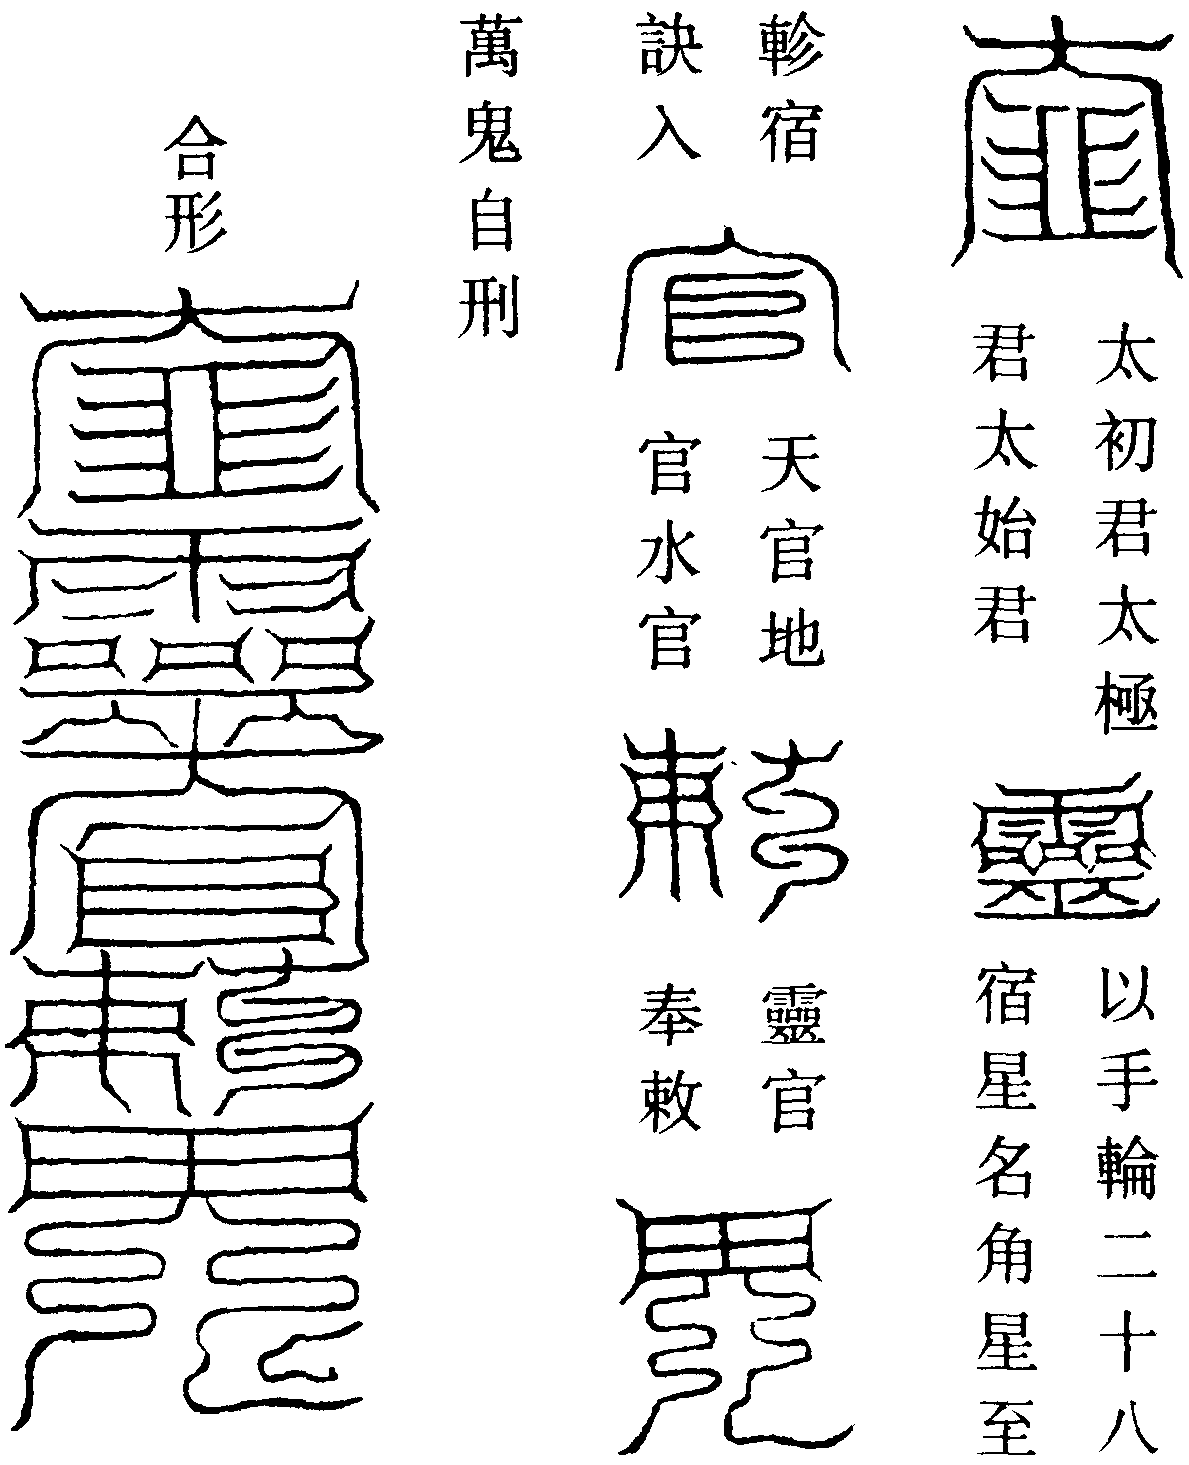 太初君太極
君太始君
以手輪二十八
宿星名角星至
軫宿
訣入
天官地
官水官
靈官
奉敕
萬鬼自刑
合形